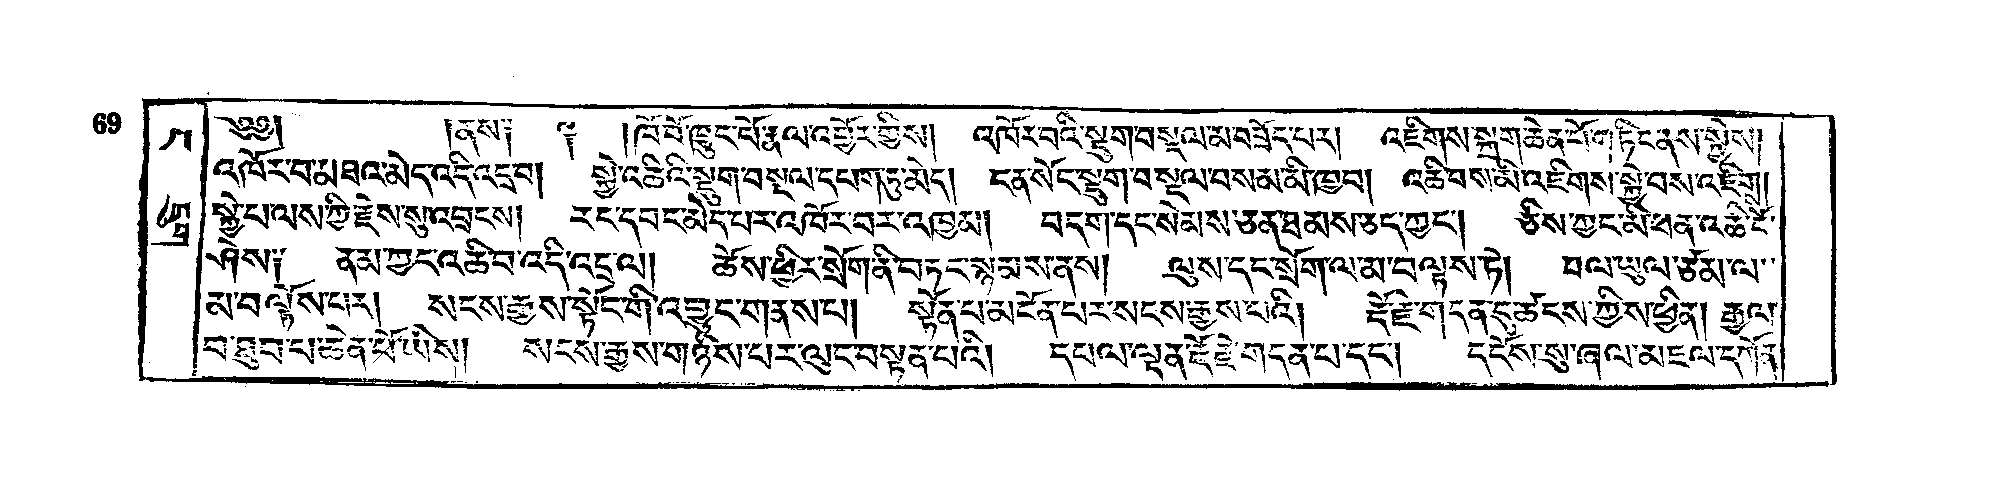 69
༄༅། །ནས༔ ༈ །ཁོ་བོ་ཁྱུང་པོ་རྣལ་འབྱོར་གྱིས། འཁོར་བའི་སྡུག་བསྔལ་མ་བཟོད་པར། འཇིགས་སྐྲག་ཆེན་པོ་གཏིང་ནས་སྐྱེས།
འཁོར་བ་མཐའ་མེད་འདི་འདྲ་བ། སྐྱེ་འཆིའི་སྡུག་བསྔལ་དཔག་ཏུ་མེད། ངན་སོང་སྡུག་བསྔལ་བསམ་མི་ཁྱབ། འཆི་བས་མི་འཇིགས་སྐྱེ་བས་འཇིགས།
སྐྱེ་པ་ལས་ཀྱི་རྗེས་སུ་འབྲངས། རང་དབང་མེད་པར་འཁོར་བར་འཁྱམ། བདག་དང་སེམས་ཅན་ཐམས་ཅད་ཀྱང་། ཅིས་ཀྱང་མི་ཕན་འཆི་ངོ་
ཤེས༔ ནམ་ཀྱང་འཆི་བ་འདི་འདྲ་ལ། ཆོས་ཕྱིར་སྲོག་ནི་བཏང་སྙམས་ནས། ལུས་དང་སྲོག་ལ་མ་བལྟས་ཏེ། བལ་ཡུལ་ཙམ་ལ་
མ་བལྟོས་པར། སངས་རྒྱས་སྟོང་གི་འབྱུང་གནས་པ། སྟོན་པ་མངོན་པར་སངས་རྒྱས་པའི། རྡོ་རྗེ་གདན་དུ་ཚངས་ཀྱིས་ཕྱིན། རྒྱལ་
བ་གྲུབ་པ་ཆེན་པོ་ཡིས། སངས་རྒྱས་གཉིས་པར་ལུང་བསྟན་པའི། དཔལ་ལྡན་རྡོ་རྗེ་གདན་པ་དང་། དངོས་སུ་ཞལ་མཇལ་